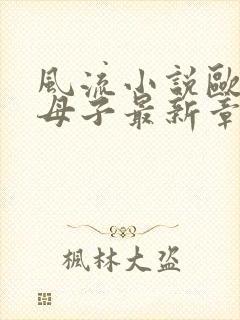 風流小説歐
母子最新章
楓林大盗